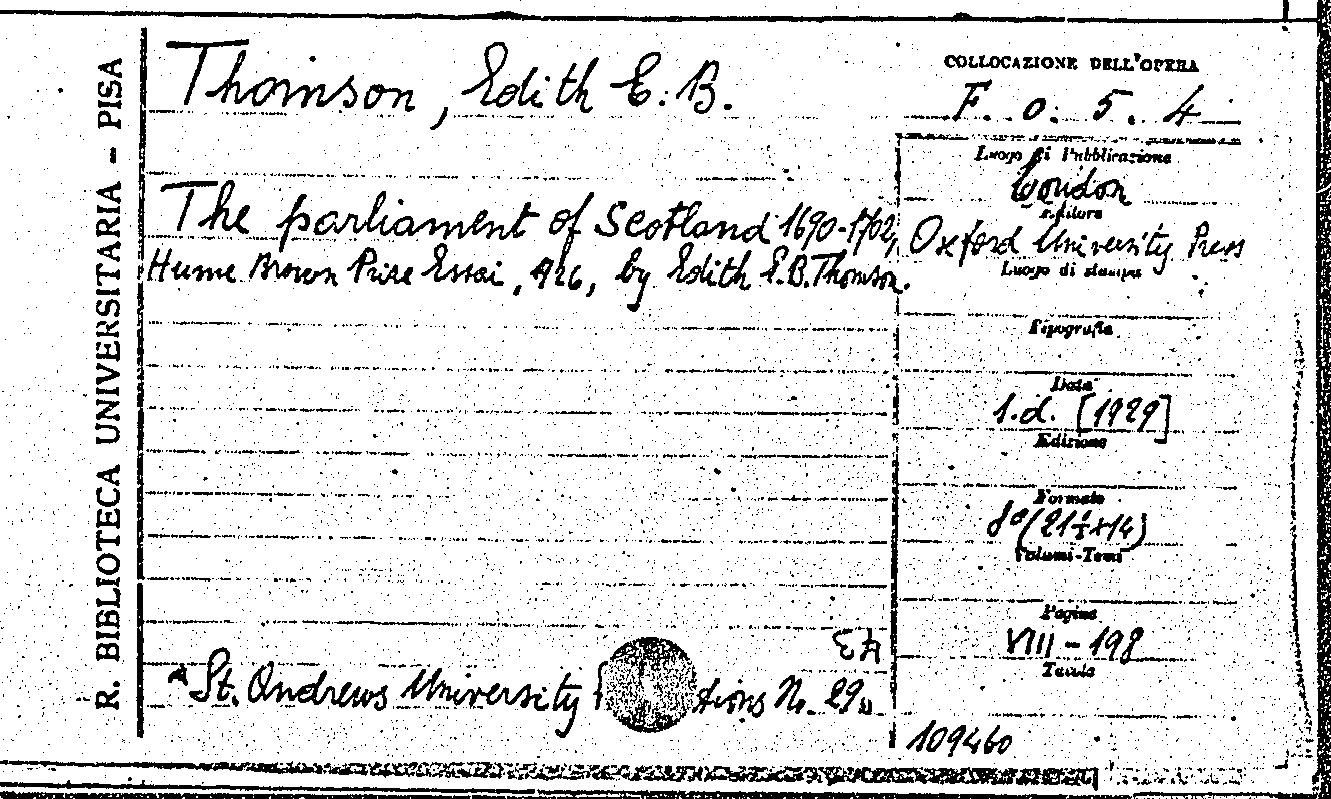 R. BIBLIOTECA UNIVERSITARIA - PISA
Thomson, Edith E. B.
COLLOCAZIONE DELL'OPERA
F. o. 5. 4
The parliament of Scotland 1690-1702,
Hume Brown Prize Essai, 1926, by Edith E.B. Thomson.
Luogo di Pubblicazione
London
Editore
Oxford University Press
Luogo di stampa
Tipografia
Data
s.d. [1929]
Edizione
Formato
8° (21½×14)
Volumi-Tomi
Pagine
VIII - 198
Tavole
"St. Andrews University tions N. 29"
109460